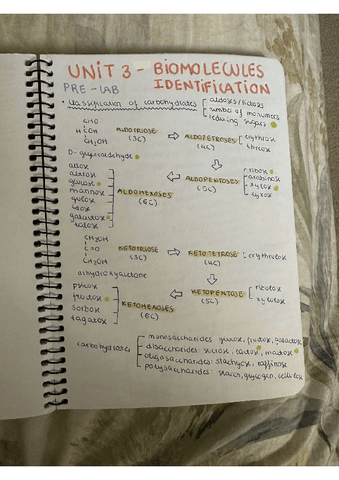 UNIT 3 - BIOMOLECULES
PRE-LAB IDENTIFICATION
• Classification of carbohydrates
aldoses/ketoses
number of monomers
reducing sugars
CHO
H C OH
CH₂OH
D-glyceraldehyde
ALDOTRIOSE (3C)
ALDOTETROSES (4C)
erythrose
threose
ALDOPENTOSES (5C)
ribose
arabinose
xylose
lyxose
ALDOHEXOSES (6C)
allose
altrose
glucose
mannose
gulose
idose
galactose
talose
CH₂OH
C=O
CH₂OH
dihydroxyacetone
KETOTRIOSE (3C)
KETOTETROSE (4C)
erythrulose
KETOPENTOSE (5C)
ribulose
xylulose
KETOHEXOSES (6C)
psicose
fructose
sorbose
tagatose
carbohydrates
monosaccharides: glucose, fructose, galactose
disaccharides: sucrose, lactose, maltose
oligosaccharides: stachyose, raffinose
polysaccharides: starch, glycogen, cellulose